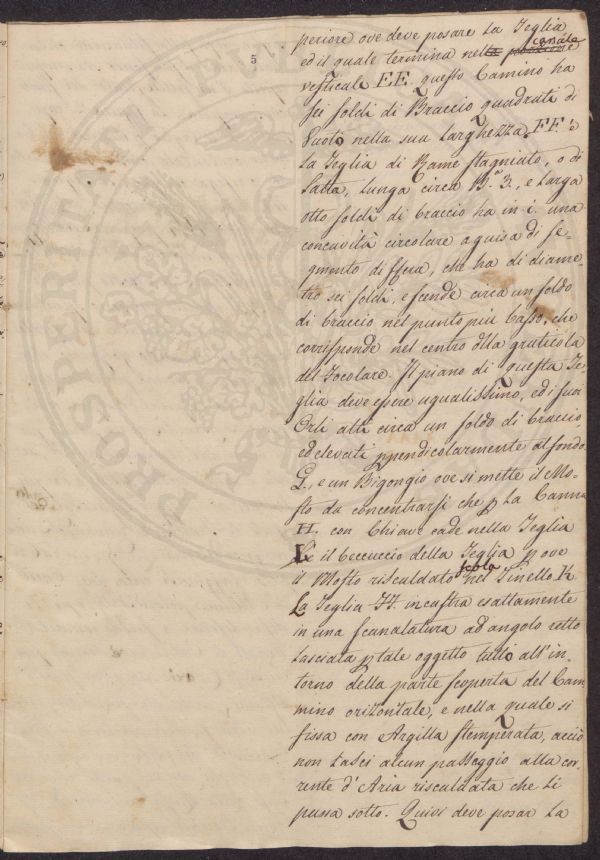 5
periore ove deve posare la Teglia
canala
ed il quale termina nella porzione
verticale E E. questo Camino ha
sei soldi di Braccio quadrati di
Vuoto nella sua larghezza. F F. è
la Teglia di Rame stagniato, o di
Latta, lunga circa B.ª 3., e larga
otto soldi di braccio ha in i. una
concavità circolare a guisa di se-
gmento di sfera, che ha di diame-
tro sei soldi, e scende circa un soldo
di braccio nel punto più basso, che
corrisponde nel centro dlla graticola
del focolare. Il piano di questa Te-
glia deve essere ugualissimo, ed i suoi
Orli alti circa un soldo di braccio,
ed elevati ppendicolarmente al fondo
G., e un Bigongio ove si mette il Mo-
sto da concentrarsi che p la Canna
H. con Chiave cade nella Teglia
L è il beccuccio della Teglia p ove
scola
il Mosto riscaldato nel Tinello K
La Teglia incastra esattamente
in una scanalatura ad angolo retto
lasciata p tale oggetto tutto all'in-
torno della parte scoperta del Cam
mino orizontale, e nella quale si
fissa con Argilla stemperata, acciò
non lasci alcun passeggio alla cor-
rente d'Aria riscaldata che li
passa sotto. Quivi deve posar la
PROSPERITATI PUB